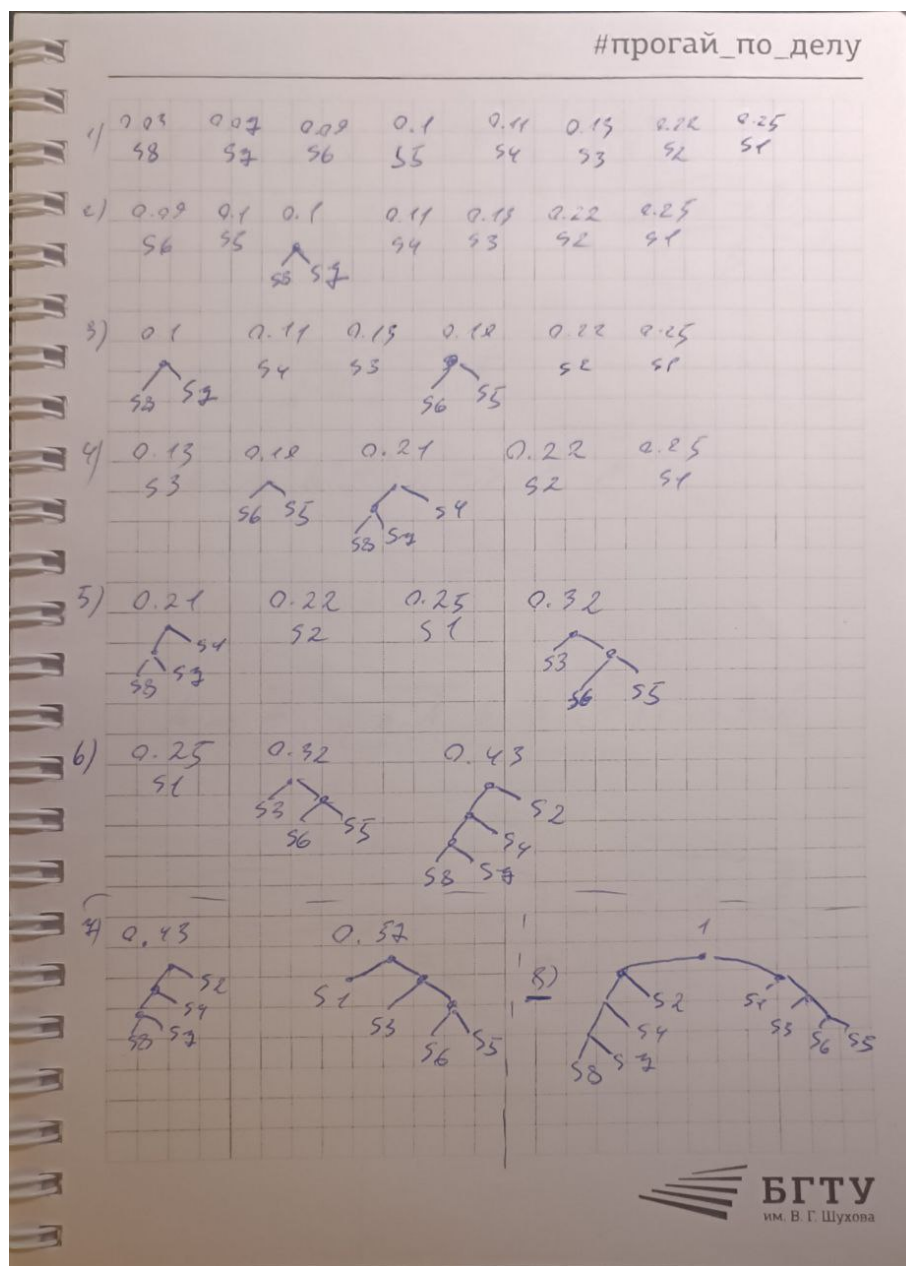 #прогай_по_делу
1) 0.03 0.07 0.09 0.1 0.11 0.13 0.22 0.25
S8 S7 S6 S5 S4 S3 S2 S1
2) 0.09 0.1 0.1 0.11 0.13 0.22 0.25
S6 S5 S4 S3 S2 S1
S8 S7
3) 0.1 0.11 0.13 0.19 0.22 0.25
S4 S3 S2 S1
S8 S7 S6 S5
4) 0.13 0.19 0.21 0.22 0.25
S3 S2 S1
S6 S5 S4
S8 S7
5) 0.21 0.22 0.25 0.32
S2 S1
S4 S3
S8 S7 S6 S5
6) 0.25 0.32 0.43
S1
S3 S2
S6 S5 S4
S8 S7
7) 0.43 0.57 8) 1
S2 S1 S2 S1
S4 S3 S4 S3
S8 S7 S6 S5 S6 S5
S8 S7
БГТУ
им. В. Г. Шухова